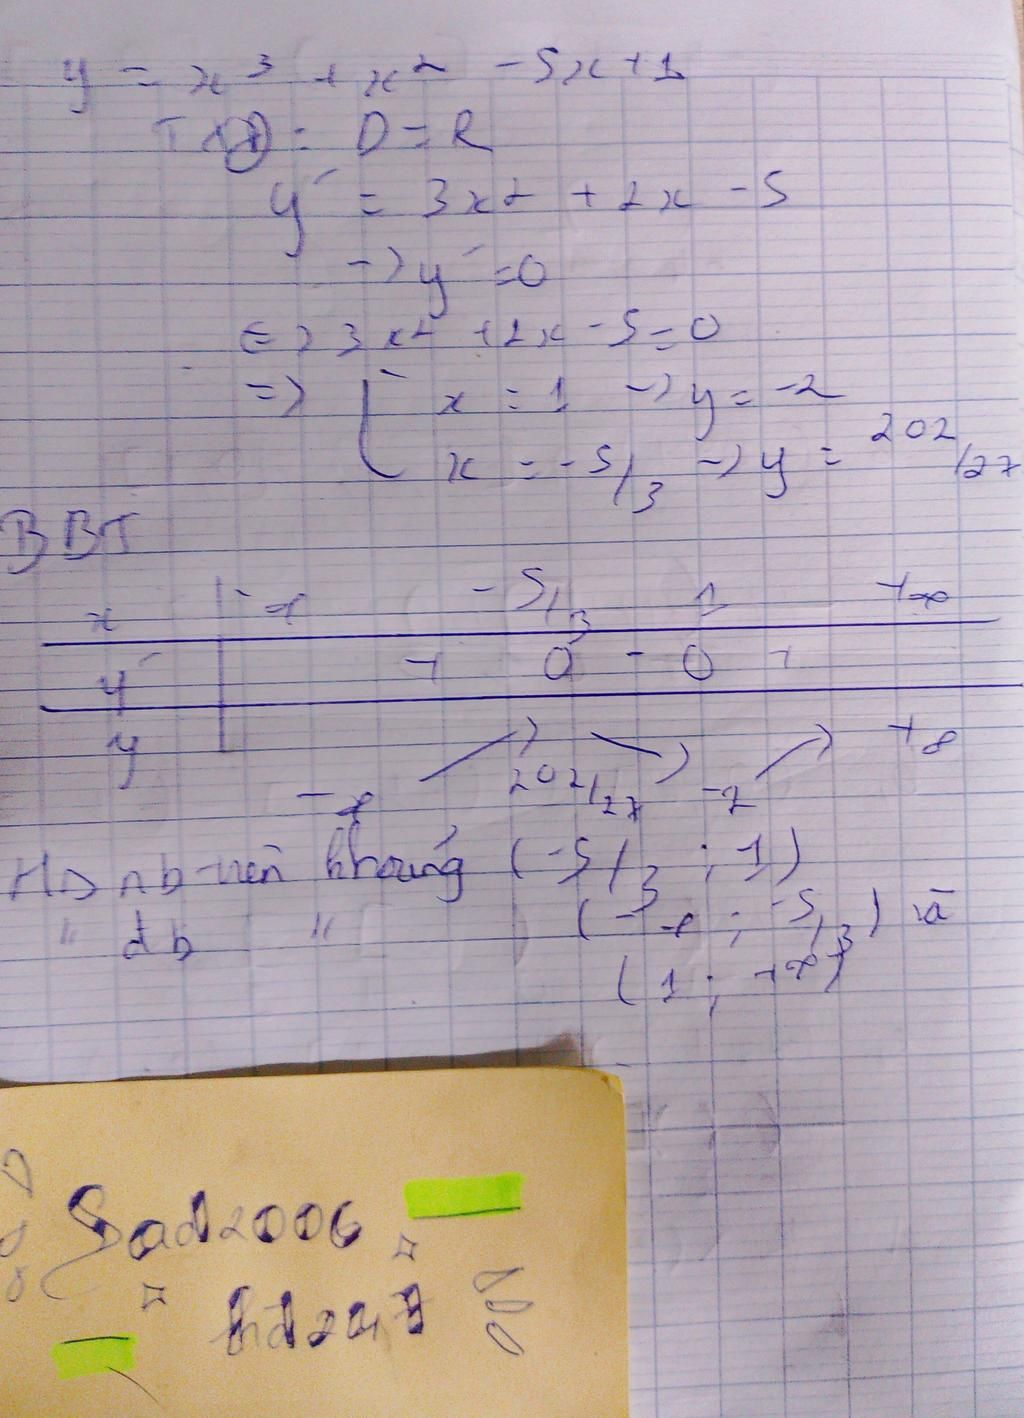 y = x³ + x² - 5x + 1
TXĐ: D = R
y' = 3x² + 2x - 5
-> y' = 0
<=> 3x² + 2x - 5 = 0
=> [ x = 1 -> y = -2
x = -5/3 -> y = 202/27
BBT
x -∞ -5/3 1 +∞
y' + 0 - 0 +
y -∞ ↗ 202/27 ↘ -2 ↗ +∞
HS nb trên khoảng (-5/3 ; 1)
" đb " (-∞ ; -5/3) và
(1 ; +∞)
Sad2006
hd247